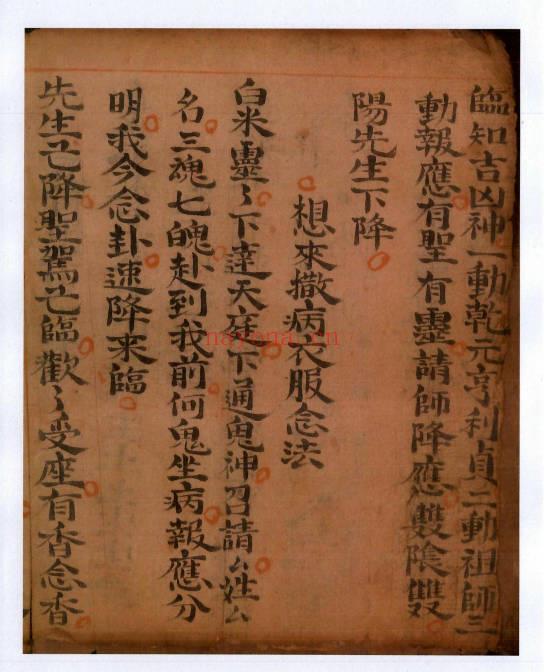 臨知吉凶神一動乾元亨利貞二動祖師三
動報應有聖有靈請師降應雙陰雙
陽先生下降
想來撒病衣服念法
白米靈〻下達天庭下通鬼神召請厶姓厶
名三魂七魄赴到我前何鬼坐病報應分
明我今念卦速降來臨
先生已降聖駕已臨歡〻受座有香念香
nayona.cn